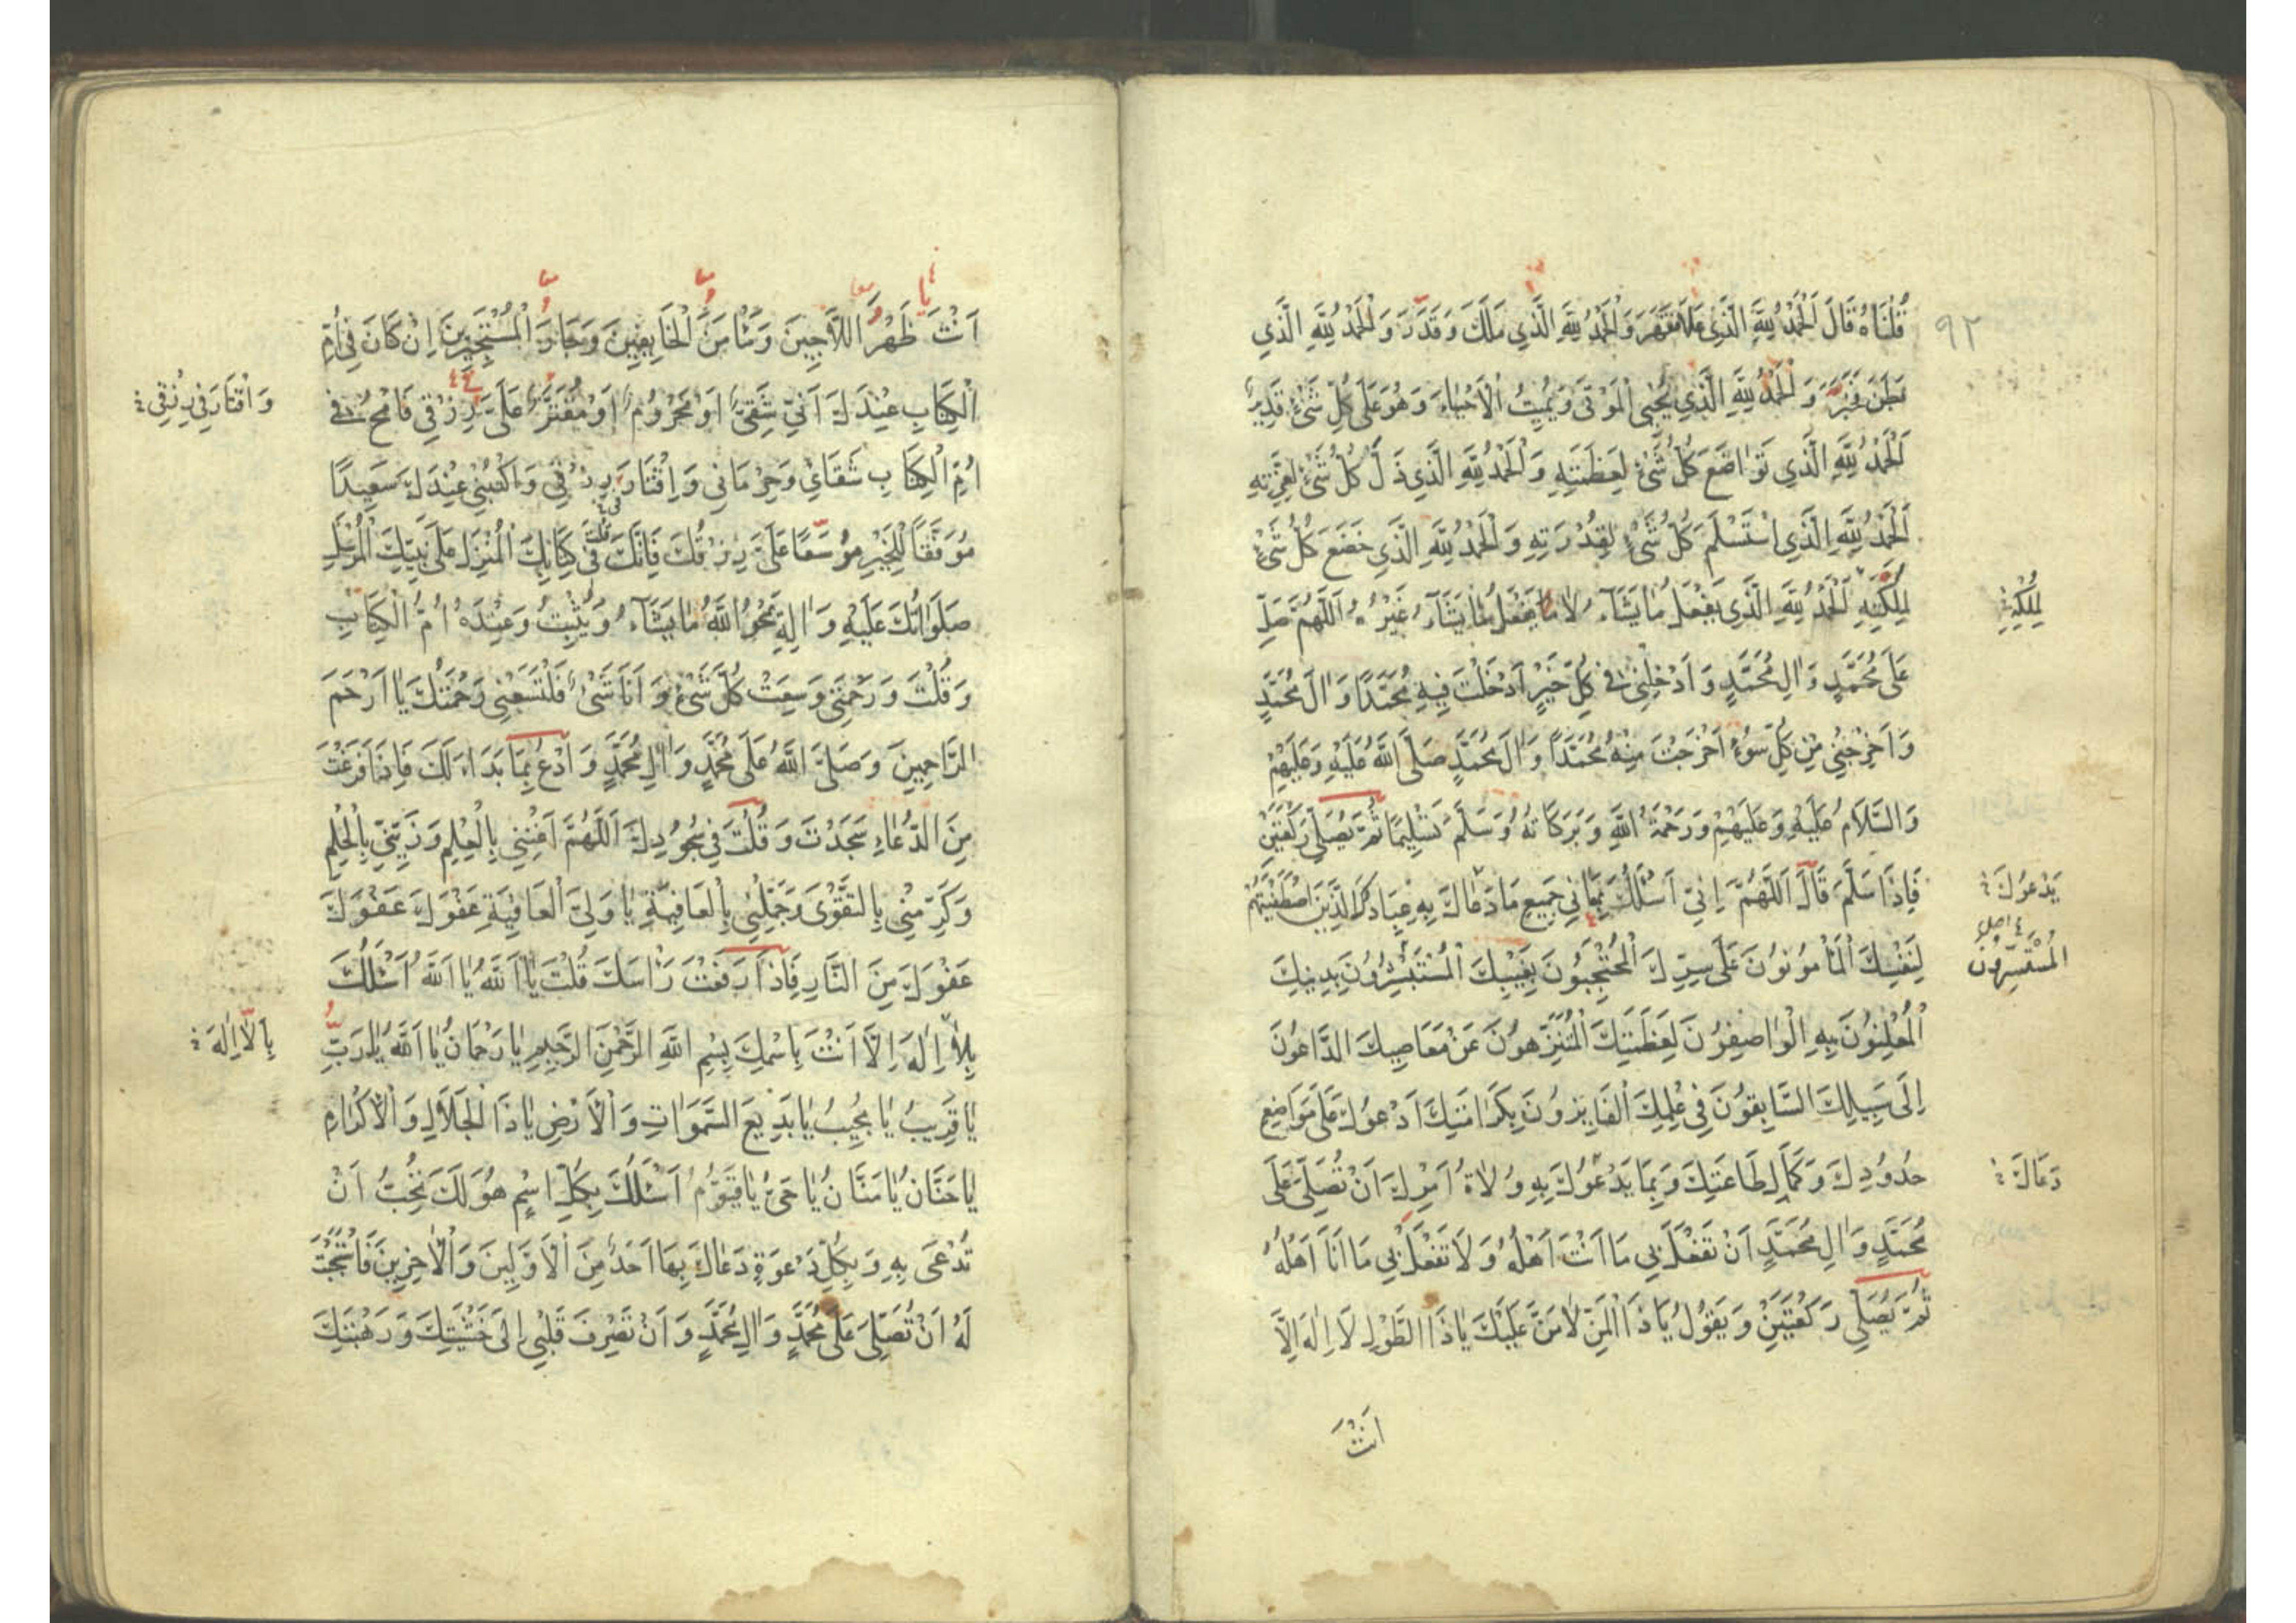 ٩٢
قُلْنَاهُ قَالَ اَلْحَمْدُ لِلّٰهِ الَّذِي عَلَا فَقَهَرَ وَالْحَمْدُ لِلّٰهِ الَّذِي مَلَكَ وَقَدَرَ وَالْحَمْدُ لِلّٰهِ الَّذِي
بَطَنَ فَخَبَرَ وَ الْحَمْدُ لِلّٰهِ الَّذِي يُحْيِي الْمَوْتَى وَيُمِيتُ الْاَحْيَاءَ وَهُوَ عَلَى كُلِّ شَيْءٍ قَدِيرٌ
اَلْحَمْدُ لِلّٰهِ الَّذِي تَوَاضَعَ كُلُّ شَيْءٍ لِعَظَمَتِهِ وَالْحَمْدُ لِلّٰهِ الَّذِي ذَلَّ كُلُّ شَيْءٍ لِعِزَّتِهِ
اَلْحَمْدُ لِلّٰهِ الَّذِي اسْتَسْلَمَ كُلُّ شَيْءٍ لِقُدْرَتِهِ وَالْحَمْدُ لِلّٰهِ الَّذِي خَضَعَ كُلُّ شَيْءٍ
لِمَلِكَتِهِ اَلْحَمْدُ لِلّٰهِ الَّذِي يَفْعَلُ مَا يَشَآءُ وَلَا يَفْعَلُ مَا يَشَآءُ غَيْرُهُ اَللّٰهُمَّ صَلِّ
لِمُلْكِهِ
عَلَى مُحَمَّدٍ وَاٰلِ مُحَمَّدٍ وَاَدْخِلْنِي فِي كُلِّ خَيْرٍ اَدْخَلْتَ فِيهِ مُحَمَّدًا وَاٰلَ مُحَمَّدٍ
وَاَخْرِجْنِي مِنْ كُلِّ سُوءٍ اَخْرَجْتَ مِنْهُ مُحَمَّدًا وَاٰلَ مُحَمَّدٍ صَلَّى اللّٰهُ عَلَيْهِ وَعَلَيْهِمْ
وَالسَّلَامُ عَلَيْهِ وَعَلَيْهِمْ وَرَحْمَةُ اللّٰهِ وَبَرَكَاتُهُ وَسَلَّمَ تَسْلِيمًا ثُمَّ يُصَلِّي رَكْعَتَيْنِ
فَاِذَا سَلَّمَ قَالَ اَللّٰهُمَّ اِنِّي اَسْئَلُكَ بِمَعَانِي جَمِيعِ مَا دَعَاكَ بِهِ عِبَادُكَ الَّذِينَ اصْطَفَيْتَهُمْ
يَدْعُوكَ
لِنَفْسِكَ الْمَأْمُونُونَ عَلَى سِرِّكَ الْمُحْتَجِبُونَ بِغَيْبِكَ الْمُسْتَبْشِرُونَ بِدِينِكَ
الْمُسْتَسِرُّونَ
الْمُعْلِنُونَ بِهِ الْوَاصِفُونَ لِعَظَمَتِكَ الْمُتَنَزِّهُونَ عَنْ مَعَاصِيكَ الدَّاعُونَ
اِلَى سَبِيلِكَ السَّابِقُونَ فِي عِلْمِكَ الْفَايِزُونَ بِكَرَامَتِكَ اَدْعُوكَ عَلَى مَوَاضِعِ
حُدُودِكَ وَكَمَالِ طَاعَتِكَ وَبِمَا يَدْعُوكَ بِهِ وُلَاةُ اَمْرِكَ اَنْ تُصَلِّيَ عَلَى
دَعَاكَ
مُحَمَّدٍ وَاٰلِ مُحَمَّدٍ اَنْ تَفْعَلَ بِي مَا اَنْتَ اَهْلُهُ وَلَا تَفْعَلْ بِي مَا اَنَا اَهْلُهُ
ثُمَّ يُصَلِّي رَكْعَتَيْنِ وَيَقُولُ يَا ذَا الْمَنِّ لَا مَنَّ عَلَيْكَ يَا ذَا الطَّوْلِ لَا اِلٰهَ اِلَّا
اَنْتَ
اَنْتَ ظَهْرَ اللَّاجِينَ وَمَأْمَنَ الْخَايِفِينَ وَجَارَ الْمُسْتَجِيرِينَ اِنْ كَانَ فِي اُمِّ
الْكِتَابِ عِنْدَكَ اَنِّي شَقِيٌّ اَوْ مَحْرُومٌ اَوْ مُقَتَّرٌ عَلَيَّ رِزْقِي فَامْحُ فِي
وَاقْتَارَ فِي رِزْقِي
اُمِّ الْكِتَابِ شَقَائِي وَحِرْمَانِي وَاِقْتَارَ رِزْقِي وَاكْتُبْنِي عِنْدَكَ سَعِيدًا
مُوَفَّقًا لِلْخَيْرِ مُوَسَّعًا عَلَيَّ رِزْقُكَ فَاِنَّكَ قُلْتَ فِي كِتَابِكَ الْمُنْزَلِ عَلَى نَبِيِّكَ الْمُرْسَلِ
صَلَوَاتُكَ عَلَيْهِ وَاٰلِهِ يَمْحُو اللّٰهُ مَا يَشَآءُ وَيُثْبِتُ وَعِنْدَهُ اُمُّ الْكِتَابِ
وَقُلْتَ وَرَحْمَتِي وَسِعَتْ كُلَّ شَيْءٍ وَاَنَا شَيْءٌ فَلْتَسَعْنِي رَحْمَتُكَ يَا اَرْحَمَ
الرَّاحِمِينَ وَصَلَّى اللّٰهُ عَلَى مُحَمَّدٍ وَاٰلِ مُحَمَّدٍ وَادْعُ بِمَا بَدَا لَكَ فَاِذَا فَرَغْتَ
مِنَ الدُّعَاءِ سَجَدْتَ وَقُلْتَ فِي سُجُودِكَ اَللّٰهُمَّ اَغْنِنِي بِالْعِلْمِ وَزَيِّنِّي بِالْحِلْمِ
وَكَرِّمْنِي بِالتَّقْوَى وَجَمِّلْنِي بِالْعَافِيَةِ يَا وَلِيَّ الْعَافِيَةِ عَفْوَكَ عَفْوَكَ
عَفْوَكَ مِنَ النَّارِ فَاِذَا رَفَعْتَ رَأْسَكَ قُلْتَ يَا اَللّٰهُ يَا اَللّٰهُ اَسْئَلُكَ
بِلَا اِلٰهَ اِلَّا اَنْتَ بِاسْمِكَ بِسْمِ اللّٰهِ الرَّحْمٰنِ الرَّحِيمِ يَا رَحْمَانُ يَا اَللّٰهُ يَا رَبِّ
بِاَلَّا اِلٰهَ
يَا قَرِيبُ يَا مُجِيبُ يَا بَدِيعَ السَّمَوَاتِ وَالْاَرْضِ يَا ذَا الْجَلَالِ وَالْاِكْرَامِ
يَا حَنَّانُ يَا مَنَّانُ يَا حَيُّ يَا قَيُّومُ اَسْئَلُكَ بِكُلِّ اسْمٍ هُوَ لَكَ تُحِبُّ اَنْ
تُدْعَى بِهِ وَبِكُلِّ دَعْوَةٍ دَعَاكَ بِهَا اَحَدٌ مِنَ الْاَوَّلِينَ وَالْاٰخِرِينَ فَاسْتَجَبْتَ
لَهُ اَنْ تُصَلِّيَ عَلَى مُحَمَّدٍ وَاٰلِ مُحَمَّدٍ وَاَنْ تَصْرِفَ قَلْبِي اِلَى خَشْيَتِكَ وَرَهْبَتِكَ